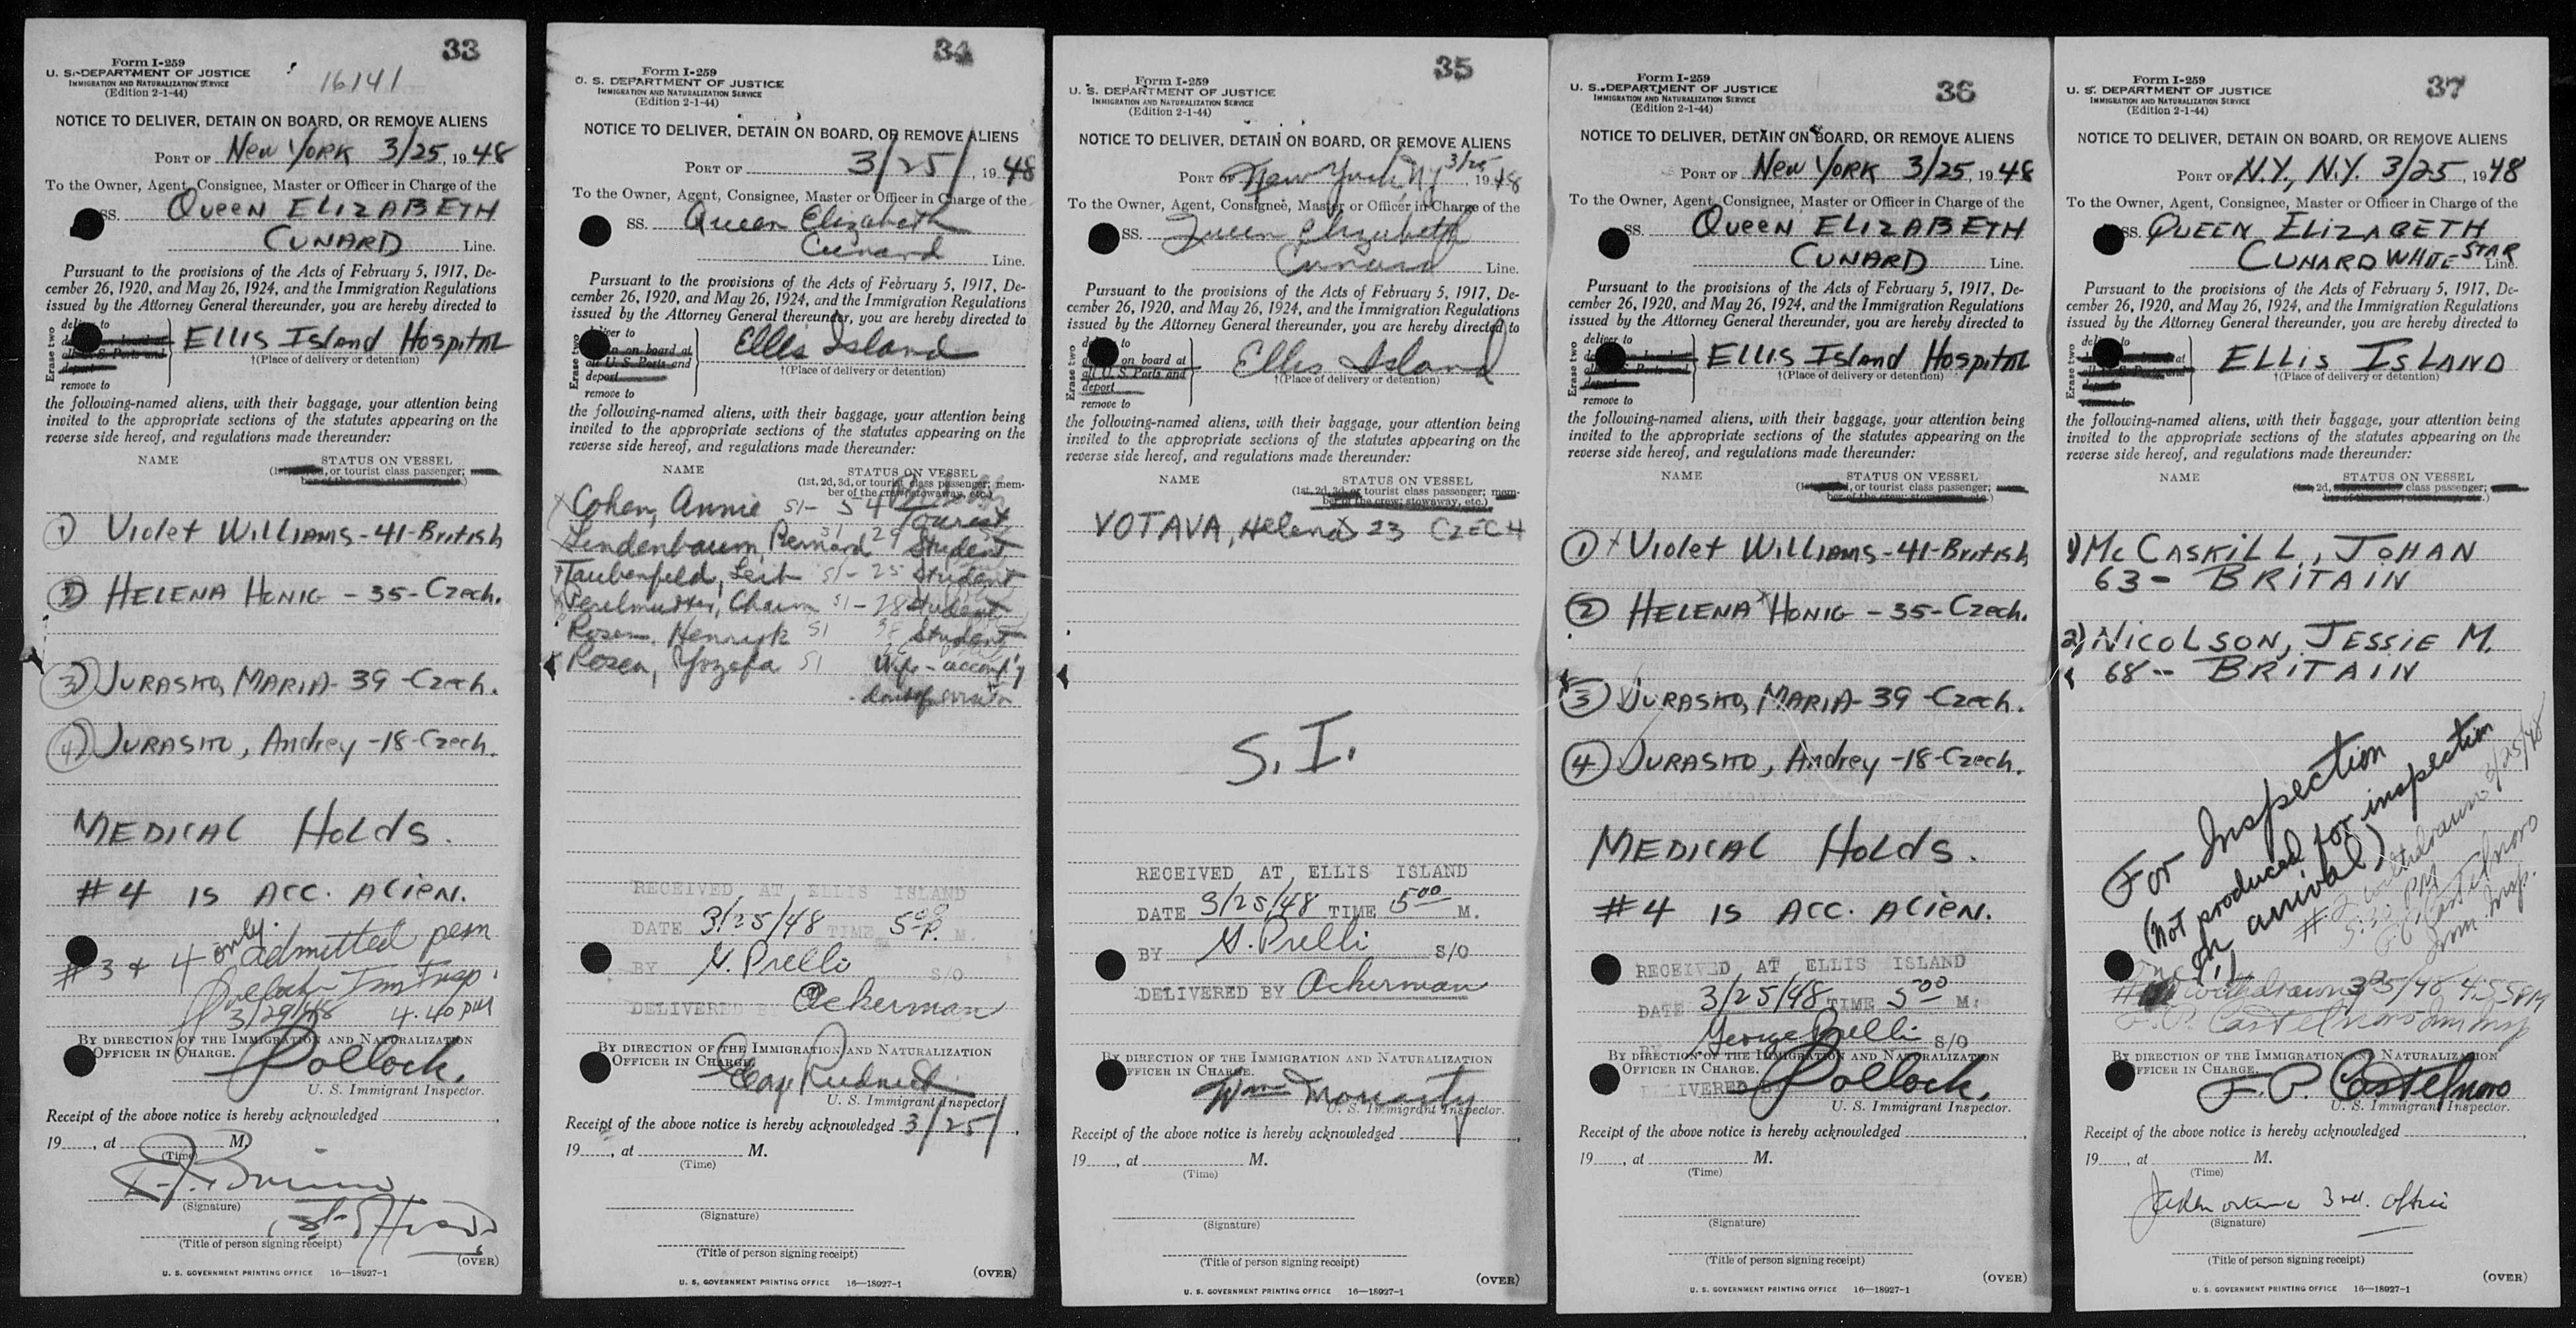 33
Form I-259
U. S. DEPARTMENT OF JUSTICE
16141
IMMIGRATION AND NATURALIZATION SERVICE
(Edition 2-1-44)
NOTICE TO DELIVER, DETAIN ON BOARD, OR REMOVE ALIENS
PORT OF New York 3/25, 1948
To the Owner, Agent, Consignee, Master or Officer in Charge of the
SS. Queen ELIZABETH
CUNARD Line.
Pursuant to the provisions of the Acts of February 5, 1917, De-
cember 26, 1920, and May 26, 1924, and the Immigration Regulations
issued by the Attorney General thereunder, you are hereby directed to
Erase two
deliver to
all U. S. Ports and
deport
remove to
ELLIS Island Hospital
†(Place of delivery or detention)
the following-named aliens, with their baggage, your attention being
invited to the appropriate sections of the statutes appearing on the
reverse side hereof, and regulations made thereunder:
NAME STATUS ON VESSEL
or tourist class passenger;
ber of the crew; stowaway, etc.)
1 Violet WILLIAMS-41-British
2 HELENA HONIG - 35-Czech.
3 JURASKO, MARIA- 39 -Czech.
4 JURASKO, Andrey -18-Czech.
MEDICAL HOLDS.
#4 is ACC. ALIEN.
#3 & 4 only. admitted perm
Pollock Im Insp.
3/29/48 4.40 PM
BY DIRECTION OF THE IMMIGRATION AND NATURALIZATION
OFFICER IN CHARGE.
Pollock.
U. S. Immigrant Inspector.
Receipt of the above notice is hereby acknowledged
19 , at M.
(Time)
(Signature)
(Title of person signing receipt)
(OVER)
U. S. GOVERNMENT PRINTING OFFICE 16—18927-1
34
Form I-259
U. S. DEPARTMENT OF JUSTICE
IMMIGRATION AND NATURALIZATION SERVICE
(Edition 2-1-44)
NOTICE TO DELIVER, DETAIN ON BOARD, OR REMOVE ALIENS
PORT OF 3/25/, 1948
To the Owner, Agent, Consignee, Master or Officer in Charge of the
SS. Queen Elizabeth
Cunard Line.
Pursuant to the provisions of the Acts of February 5, 1917, De-
cember 26, 1920, and May 26, 1924, and the Immigration Regulations
issued by the Attorney General thereunder, you are hereby directed to
Erase two
deliver to
on board at
all U. S. Ports and
deport
remove to
Ellis Island
†(Place of delivery or detention)
the following-named aliens, with their baggage, your attention being
invited to the appropriate sections of the statutes appearing on the
reverse side hereof, and regulations made thereunder:
NAME STATUS ON VESSEL
(1st, 2d, 3d, or tourist class passenger; mem-
ber of the crew; stowaway, etc.)
Cohen, Annie SI- 54 Tourist
Lindenbaum Bernard SI 29 Student
Taubenfeld, Leib SI- 25 Student
Perlmutter, Chaim SI- 28 Student
Rosen, Henryk SI 38 Student
Rosen, Yozefa SI Wife - accomp'g
RECEIVED AT ELLIS ISLAND
DATE 3/25/48 TIME 5:00 P. M.
BY G. Prelli S/O
DELIVERED BY Ackerman
BY DIRECTION OF THE IMMIGRATION AND NATURALIZATION
OFFICER IN CHARGE.
U. S. Immigrant Inspector.
Receipt of the above notice is hereby acknowledged 3/25/
19 , at M.
(Time)
(Signature)
(Title of person signing receipt)
(OVER)
U. S. GOVERNMENT PRINTING OFFICE 16—18927-1
35
Form I-259
U. S. DEPARTMENT OF JUSTICE
IMMIGRATION AND NATURALIZATION SERVICE
(Edition 2-1-44)
NOTICE TO DELIVER, DETAIN ON BOARD, OR REMOVE ALIENS
PORT OF New York NY 3/25, 1948
To the Owner, Agent, Consignee, Master or Officer in Charge of the
SS. Queen Elizabeth
Cunard Line.
Pursuant to the provisions of the Acts of February 5, 1917, De-
cember 26, 1920, and May 26, 1924, and the Immigration Regulations
issued by the Attorney General thereunder, you are hereby directed to
Erase two
deliver to
on board at
all U. S. Ports and
deport
remove to
Ellis Island
†(Place of delivery or detention)
the following-named aliens, with their baggage, your attention being
invited to the appropriate sections of the statutes appearing on the
reverse side hereof, and regulations made thereunder:
NAME STATUS ON VESSEL
(1st, 2d, 3d, or tourist class passenger; mem-
ber of the crew; stowaway, etc.)
VOTAVA, Helena 23 CZECH
S. I.
RECEIVED AT ELLIS ISLAND
DATE 3/25/48 TIME 5:00 M.
BY G. Prelli S/O
DELIVERED BY Ackerman
BY DIRECTION OF THE IMMIGRATION AND NATURALIZATION
OFFICER IN CHARGE.
Wm Moriarty
U. S. Immigrant Inspector.
Receipt of the above notice is hereby acknowledged
19 , at M.
(Time)
(Signature)
(Title of person signing receipt)
(OVER)
U. S. GOVERNMENT PRINTING OFFICE 16—18927-1
36
Form I-259
U. S. DEPARTMENT OF JUSTICE
IMMIGRATION AND NATURALIZATION SERVICE
(Edition 2-1-44)
NOTICE TO DELIVER, DETAIN ON BOARD, OR REMOVE ALIENS
PORT OF New York 3/25, 1948
To the Owner, Agent, Consignee, Master or Officer in Charge of the
SS. Queen ELIZABETH
CUNARD Line.
Pursuant to the provisions of the Acts of February 5, 1917, De-
cember 26, 1920, and May 26, 1924, and the Immigration Regulations
issued by the Attorney General thereunder, you are hereby directed to
Erase two
deliver to
remove to
ELLIS Island Hospital
†(Place of delivery or detention)
the following-named aliens, with their baggage, your attention being
invited to the appropriate sections of the statutes appearing on the
reverse side hereof, and regulations made thereunder:
NAME STATUS ON VESSEL
or tourist class passenger;
ber of the crew; stowaway, etc.)
1 x Violet WILLIAMS-41-British
2 HELENA HONIG - 35-Czech.
3 JURASKO, MARIA- 39 -Czech.
4 JURASKO, Andrey -18-Czech.
MEDICAL HOLDS.
#4 is ACC. ALIEN.
RECEIVED AT ELLIS ISLAND
DATE 3/25/48 TIME 5:00 M.
BY George Prelli S/O
DELIVERED BY
BY DIRECTION OF THE IMMIGRATION AND NATURALIZATION
OFFICER IN CHARGE.
Pollock.
U. S. Immigrant Inspector.
Receipt of the above notice is hereby acknowledged
19 , at M.
(Time)
(Signature)
(Title of person signing receipt)
(OVER)
U. S. GOVERNMENT PRINTING OFFICE 16—18927-1
37
Form I-259
U. S. DEPARTMENT OF JUSTICE
IMMIGRATION AND NATURALIZATION SERVICE
(Edition 2-1-44)
NOTICE TO DELIVER, DETAIN ON BOARD, OR REMOVE ALIENS
PORT OF N.Y., N.Y. 3/25, 1948
To the Owner, Agent, Consignee, Master or Officer in Charge of the
SS. QUEEN ELIZABETH
CUNARD WHITE STAR Line.
Pursuant to the provisions of the Acts of February 5, 1917, De-
cember 26, 1920, and May 26, 1924, and the Immigration Regulations
issued by the Attorney General thereunder, you are hereby directed to
Erase two
deliver to
remove to
ELLIS ISLAND
†(Place of delivery or detention)
the following-named aliens, with their baggage, your attention being
invited to the appropriate sections of the statutes appearing on the
reverse side hereof, and regulations made thereunder:
NAME STATUS ON VESSEL
(1st, 2d, class passenger;
ber of the crew; stowaway, etc.)
1) McCASKILL, JOHAN
63- BRITAIN
2) NICOLSON, JESSIE M.
68-- BRITAIN
For Inspection
(Not produced for inspection
on arrival)
#2 withdrawn 3/25/48
5:30 PM
F. P. Castelnoro
Imm. Insp.
withdrawn 3/25/48 4:55 PM
F. P. Castelnoro Imm Insp
BY DIRECTION OF THE IMMIGRATION AND NATURALIZATION
OFFICER IN CHARGE.
F. P. Castelnoro
U. S. Immigrant Inspector.
Receipt of the above notice is hereby acknowledged
19 , at M.
(Time)
3rd. Officer
(Signature)
(Title of person signing receipt)
(OVER)
U. S. GOVERNMENT PRINTING OFFICE 16—18927-1